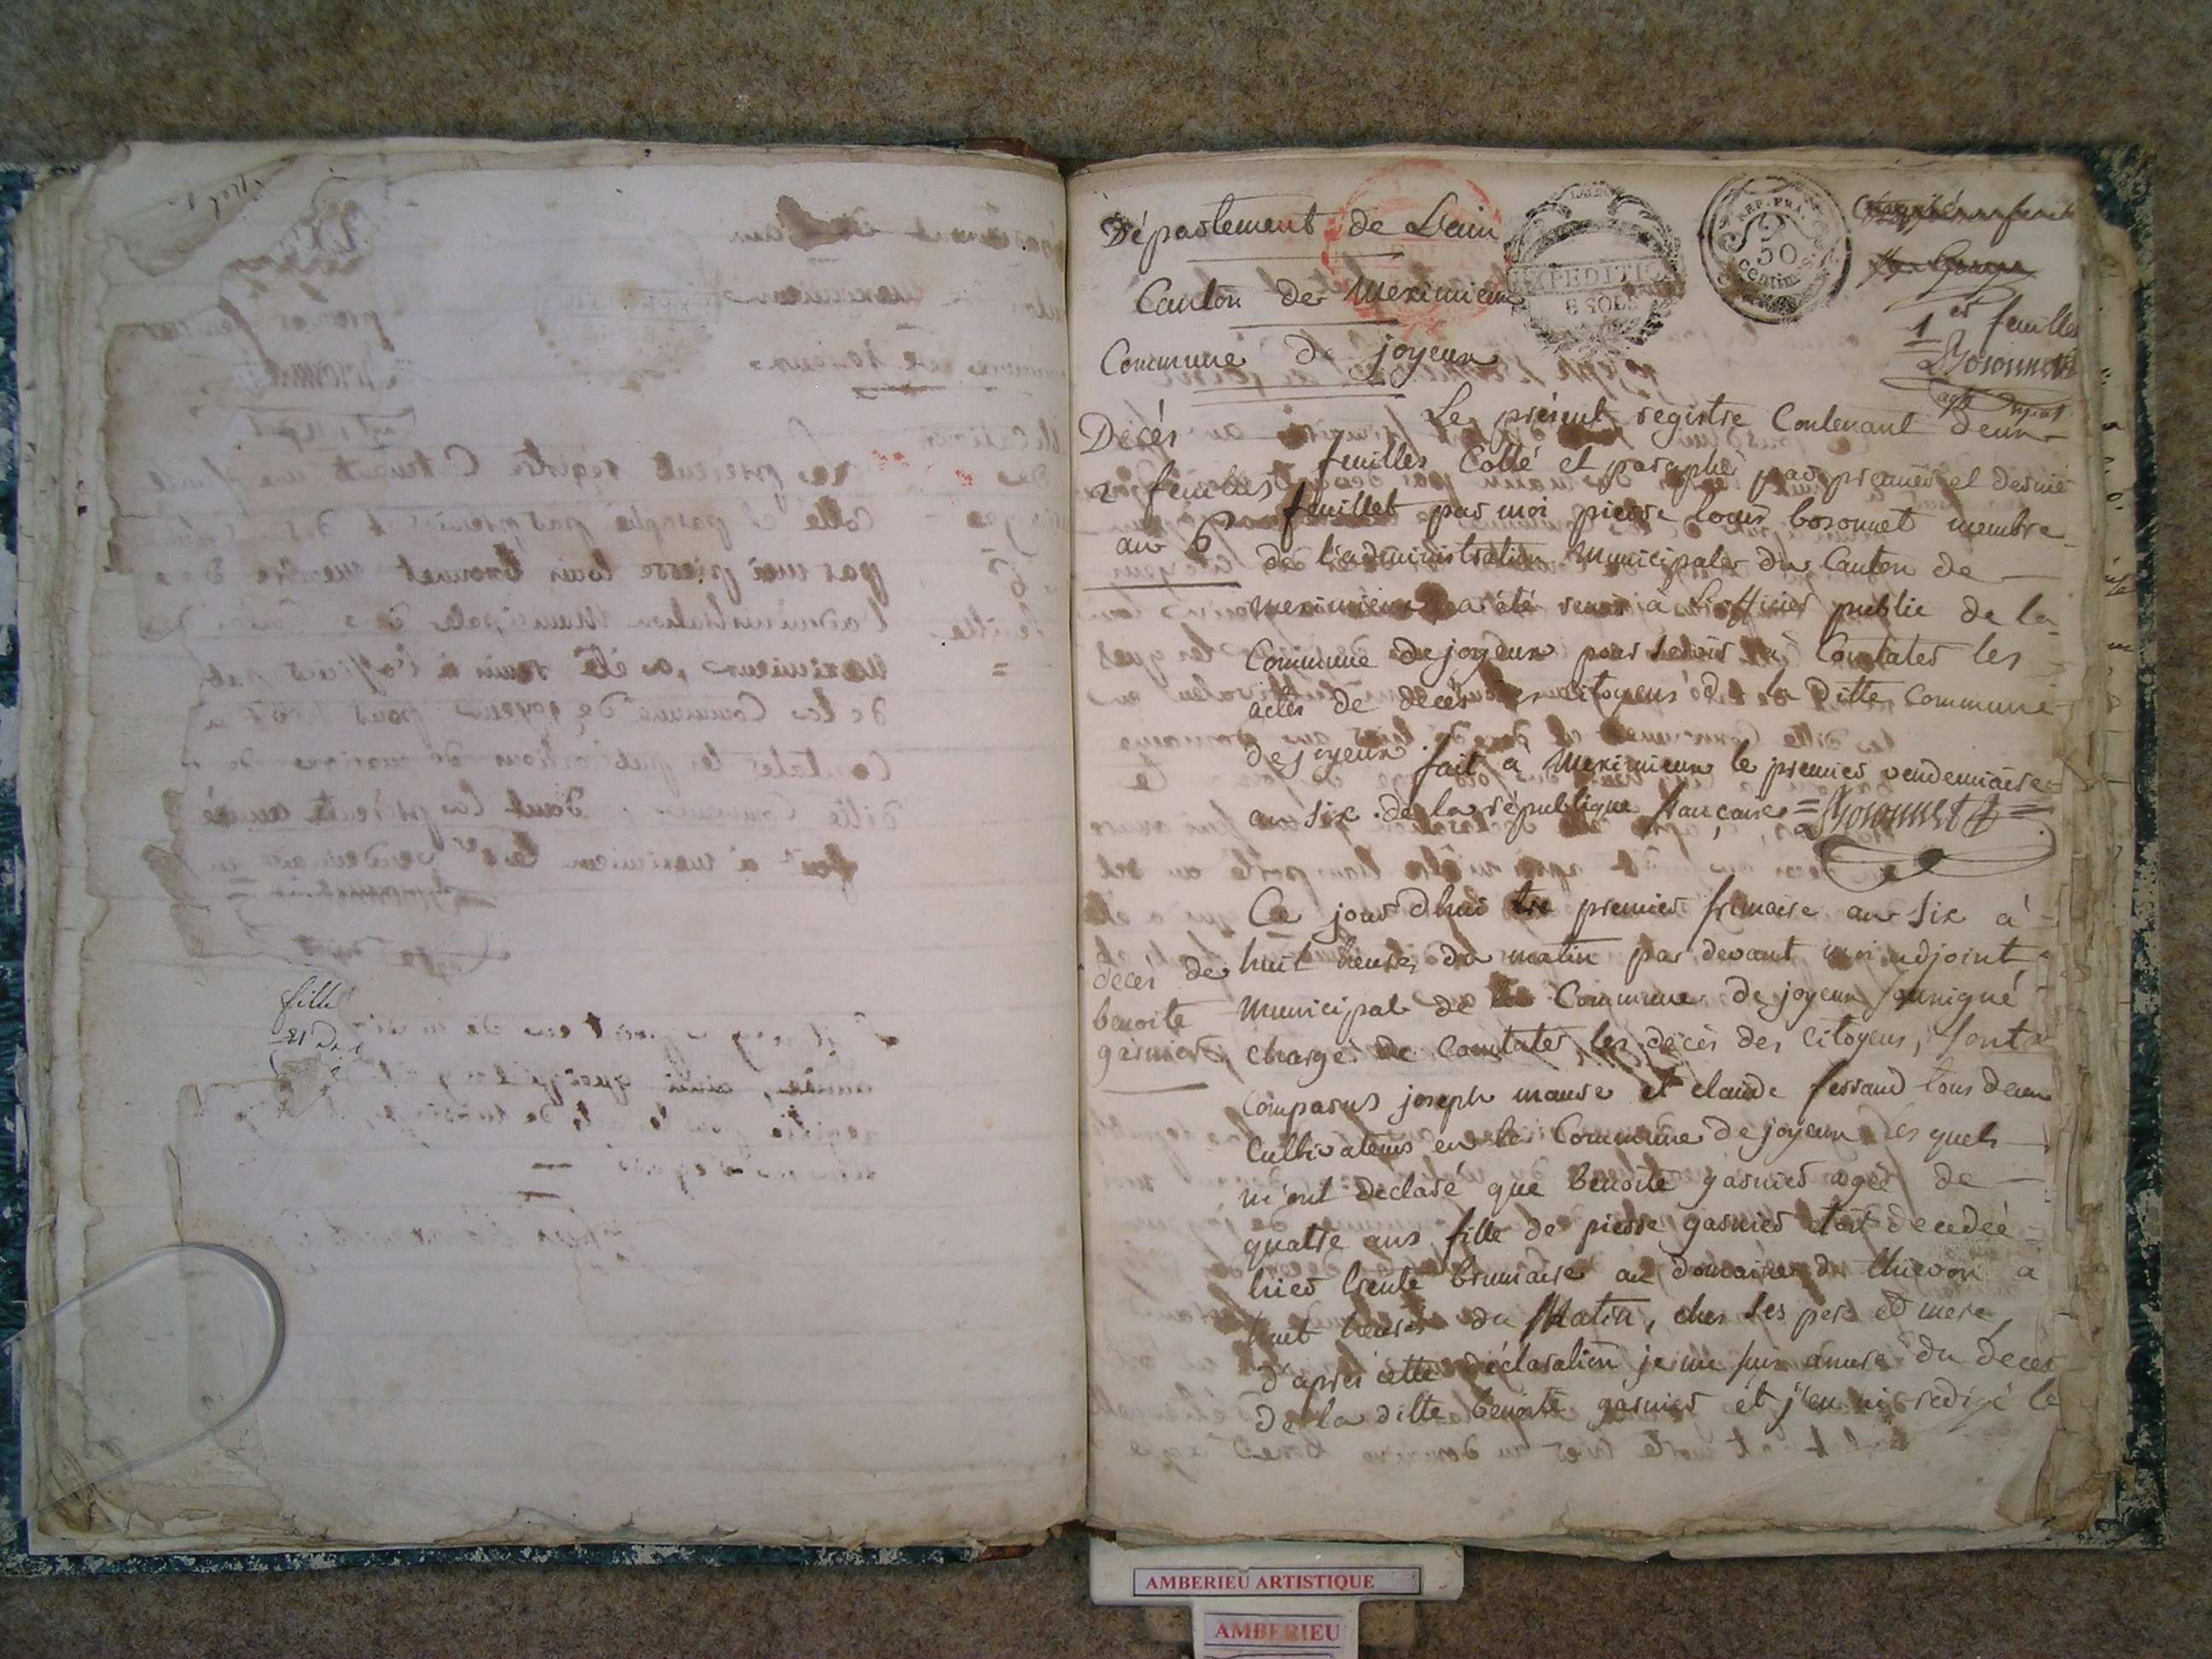 fille
Département de Lain
Canton de Meximieux
Commune de joyeux
EXPEDITION
8 SOLS
REP. FRA.
50
centim.
1er feuillet
Bozonnet
agt
Décès
2 feuilles
an 6
Le présent registre Contenant deux
feuilles Cotté et paraphé par premier et dernie
feuillet par moi pierre louis bozonnet membre
de l'administration Municipale du Canton de
meximieux a été remis à Lofficier public de la
Commune de joyeux pour servir à Constater les
actes de décès des citoyens de la ditte commune
de joyeux fait à Meximieux le premier vendemiaire
an six de la république française = Bozonnet
décès de
benoite
garnier
Ce jour dhui premier frimaire an six à
huit heures du matin par devant moi adjoint
Municipal de la Commune de joyeux sousigné
chargé de Constater les décès des Citoyens, sont
comparus joseph mause et claude ferrand tous deux
Cultivateurs en la Commune de joyeux les quels
m'ont declaré que benoite garnier agée de
quatre ans fille de pierre garnier etoit decedée
hier trente brumaire au domaine de thievon à
huit heures du Matin, ches ses pere et mere
d'après cette déclaration je me suis assuré du deces
de la ditte benoite garnier et j'en ai redigé le
AMBERIEU ARTISTIQUE
AMBERIEU